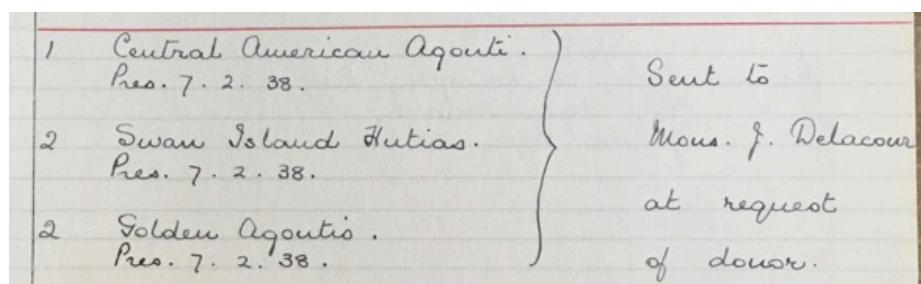 1 Central American Agouti.
Pres. 7. 2. 38.
2 Swan Island Hutias.
Pres. 7. 2. 38.
2 Golden Agoutis.
Pres. 7. 2. 38.
Sent to
Mons. J. Delacour
at request
of donor.